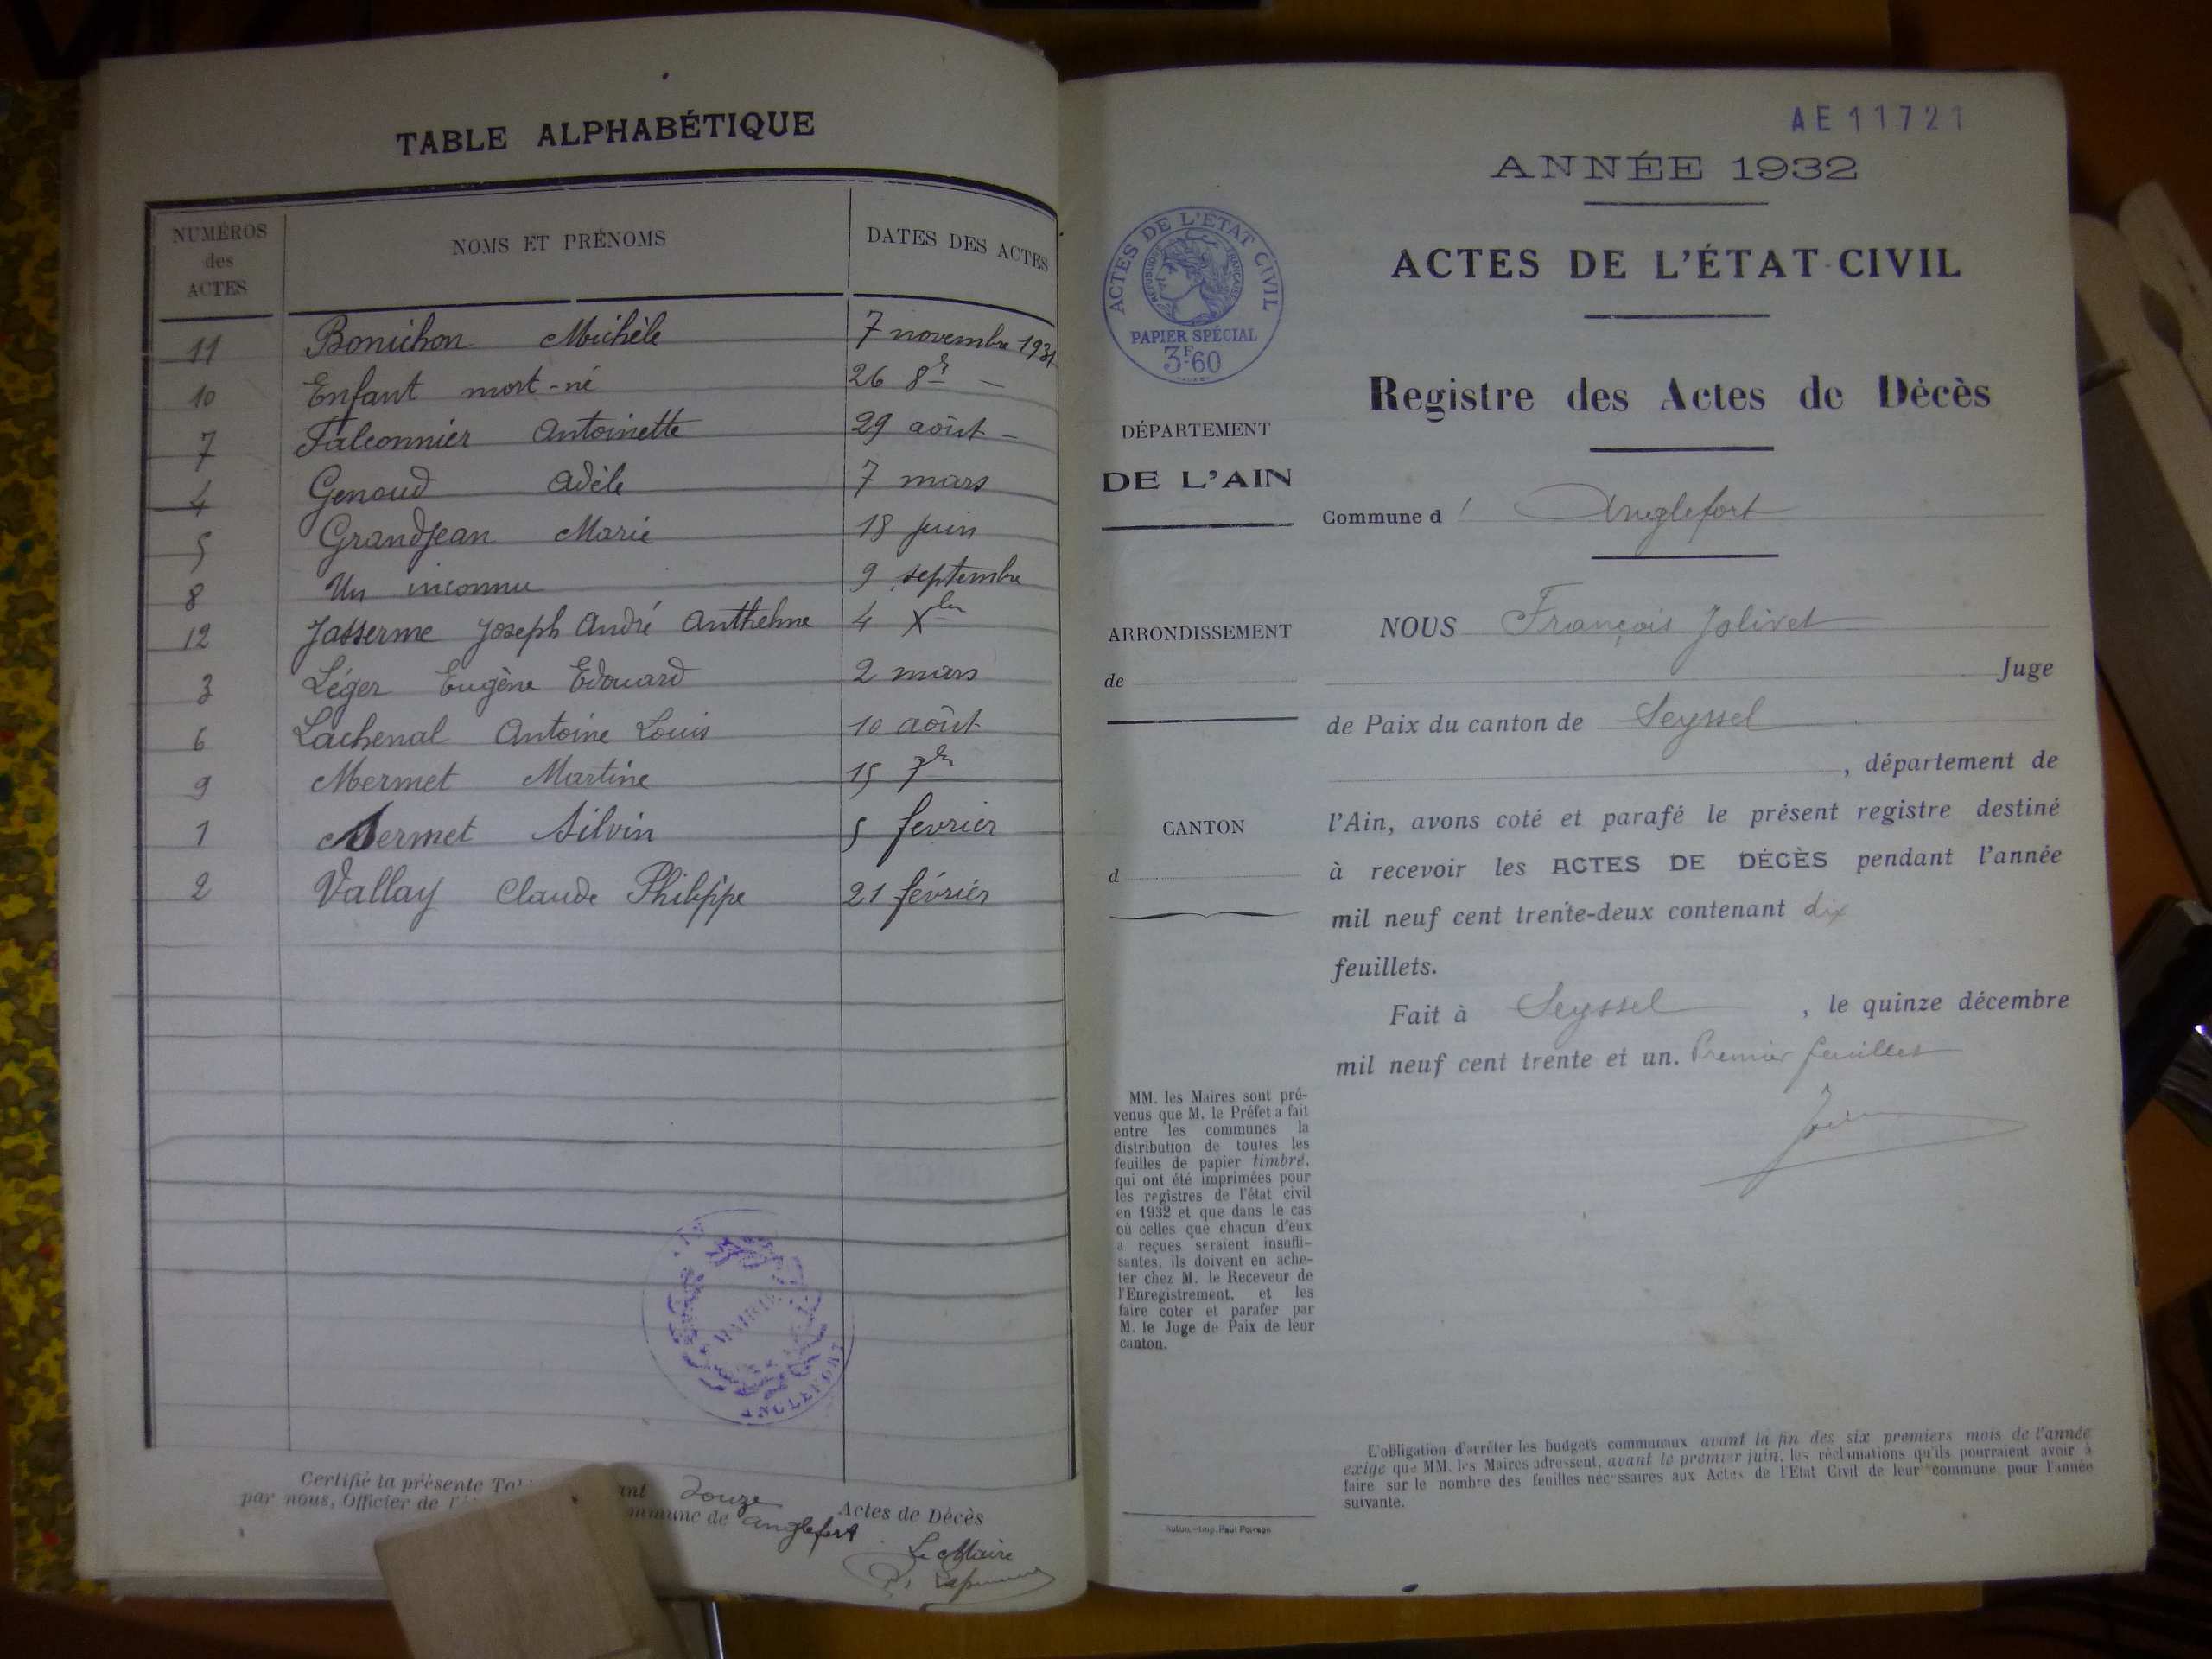 TABLE ALPHABÉTIQUE
NUMÉROS des ACTES NOMS ET PRÉNOMS DATES DES ACTES
11 Bonichon Michèle 7 novembre 1931
10 Enfant mort-né 26 8re —
7 Falconnier Antoinette 29 août —
4 Genoud Adèle 7 mars
5 Grandjean Marie 18 juin
8 Un inconnu 9 septembre
12 Jasserme Joseph André Anthelme 4 Xbre
3 Léger Eugène Edouard 2 mars
6 Lachenal Antoine Louis 10 août
9 Mermet Martine 15 7bre
1 Mermet Silvin 5 fevrier
2 Vallay Claude Philippe 21 février
MAIRIE
ANGLEFORT
Certifié la présente douze Actes de Décès
par nous, Officier de mmune de Anglefort
Le Maire
AE11721
ANNÉE 1932
ACTES DE L'ÉTAT CIVIL
RÉPUBLIQUE FRANÇAISE
PAPIER SPÉCIAL
3F60
ACTES DE L'ÉTAT CIVIL
Registre des Actes de Décès
DÉPARTEMENT
DE L'AIN
Commune d' Anglefort
ARRONDISSEMENT
de
CANTON
d
NOUS François Jolivet
Juge
de Paix du canton de Seyssel
, département de
l'Ain, avons coté et parafé le présent registre destiné
à recevoir les ACTES DE DÉCÈS pendant l'année
mil neuf cent trente-deux contenant dix
feuillets.
Fait à Seyssel , le quinze décembre
mil neuf cent trente et un. Premier feuillet
MM. les Maires sont pré-
venus que M. le Préfet a fait
entre les communes la
distribution de toutes les
feuilles de papier timbré,
qui ont été imprimées pour
les registres de l'état civil
en 1932 et que dans le cas
où celles que chacun d'eux
a reçues seraient insuffi-
santes, ils doivent en ache-
ter chez M. le Receveur de
l'Enregistrement, et les
faire coter et parafer par
M. le Juge de Paix de leur
canton.
L'obligation d'arrêter les budgets communaux avant la fin des six premiers mois de l'année
exige que MM. les Maires adressent, avant le premier juin, les réclamations qu'ils pourraient avoir à
faire sur le nombre des feuilles nécessaires aux Actes de l'Etat Civil de leur commune pour l'année
suivante.
Imp. Paul